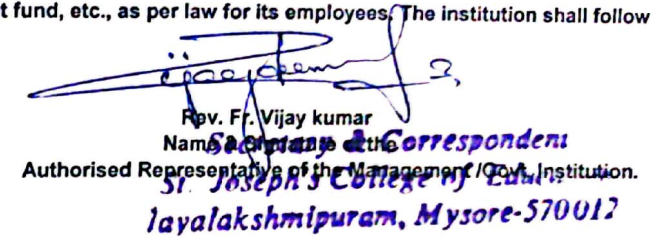 t fund, etc., as per law for its employees. The institution shall follow
Rev. Fr. Vijay kumar
Name & Signature of the
Secretary & Correspondent
Authorised Representative of the Management /Govt. Institution.
St. Joseph's College of
Jayalakshmipuram, Mysore-570012